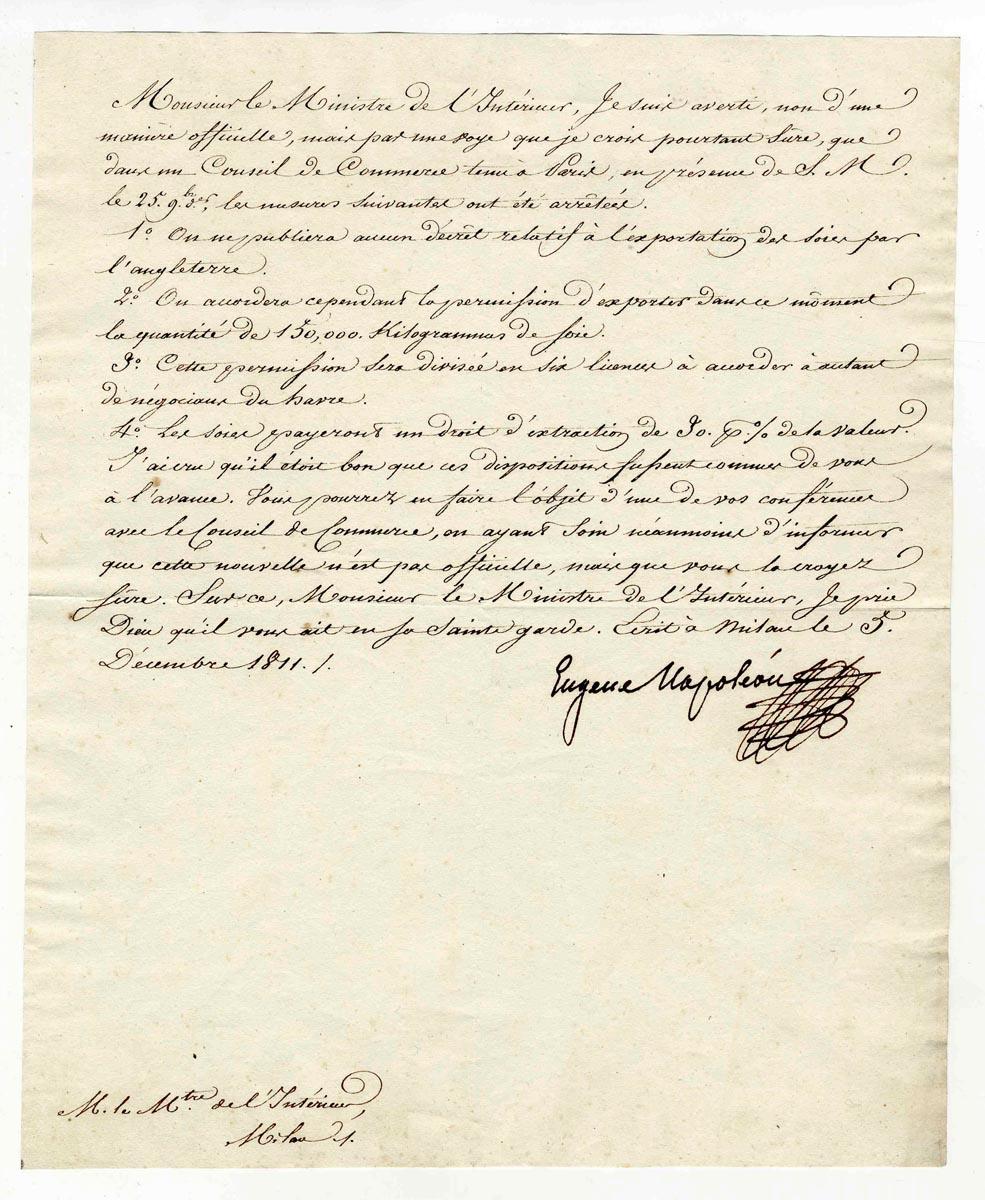 Monsieur le Ministre de l'Intérieur, Je suis averti, non d'une
manière officielle, mais par une voye que je crois pourtant sûre, que
dans un Conseil de Commerce tenu à Paris, en présence de S. M.
le 25. 9.bre les mesures suivantes ont été arrêtées.
1.° On ne publiera aucun décret relatif à l'exportation des soies par
l'angleterre.
2.° On accordera cependant la permission d'exporter dans ce moment
la quantité de 150,000. Kilogrammes de soie.
3.° Cette permission sera divisée en six licences à accorder à autant
de négocians du havre.
4.° Les soies payeront un droit d'extraction de 30. p% de la valeur.
J'ai cru qu'il étoit bon que ces dispositions fussent connues de vous
à l'avance. Vous pourrez en faire l'objet d'une de vos conférences
avec le Conseil de Commerce, en ayant soin néanmoins d'informer
que cette nouvelle n'est pas officielle, mais que vous la croyez
sûre. Sur ce, Monsieur le Ministre de l'Intérieur, Je prie
Dieu qu'il vous ait en sa Sainte garde. Ecrit à Milan le 5.
Décembre 1811./.
Eugene Napoléon
M. le M.tre de l'Intérieur,
Milan ./.